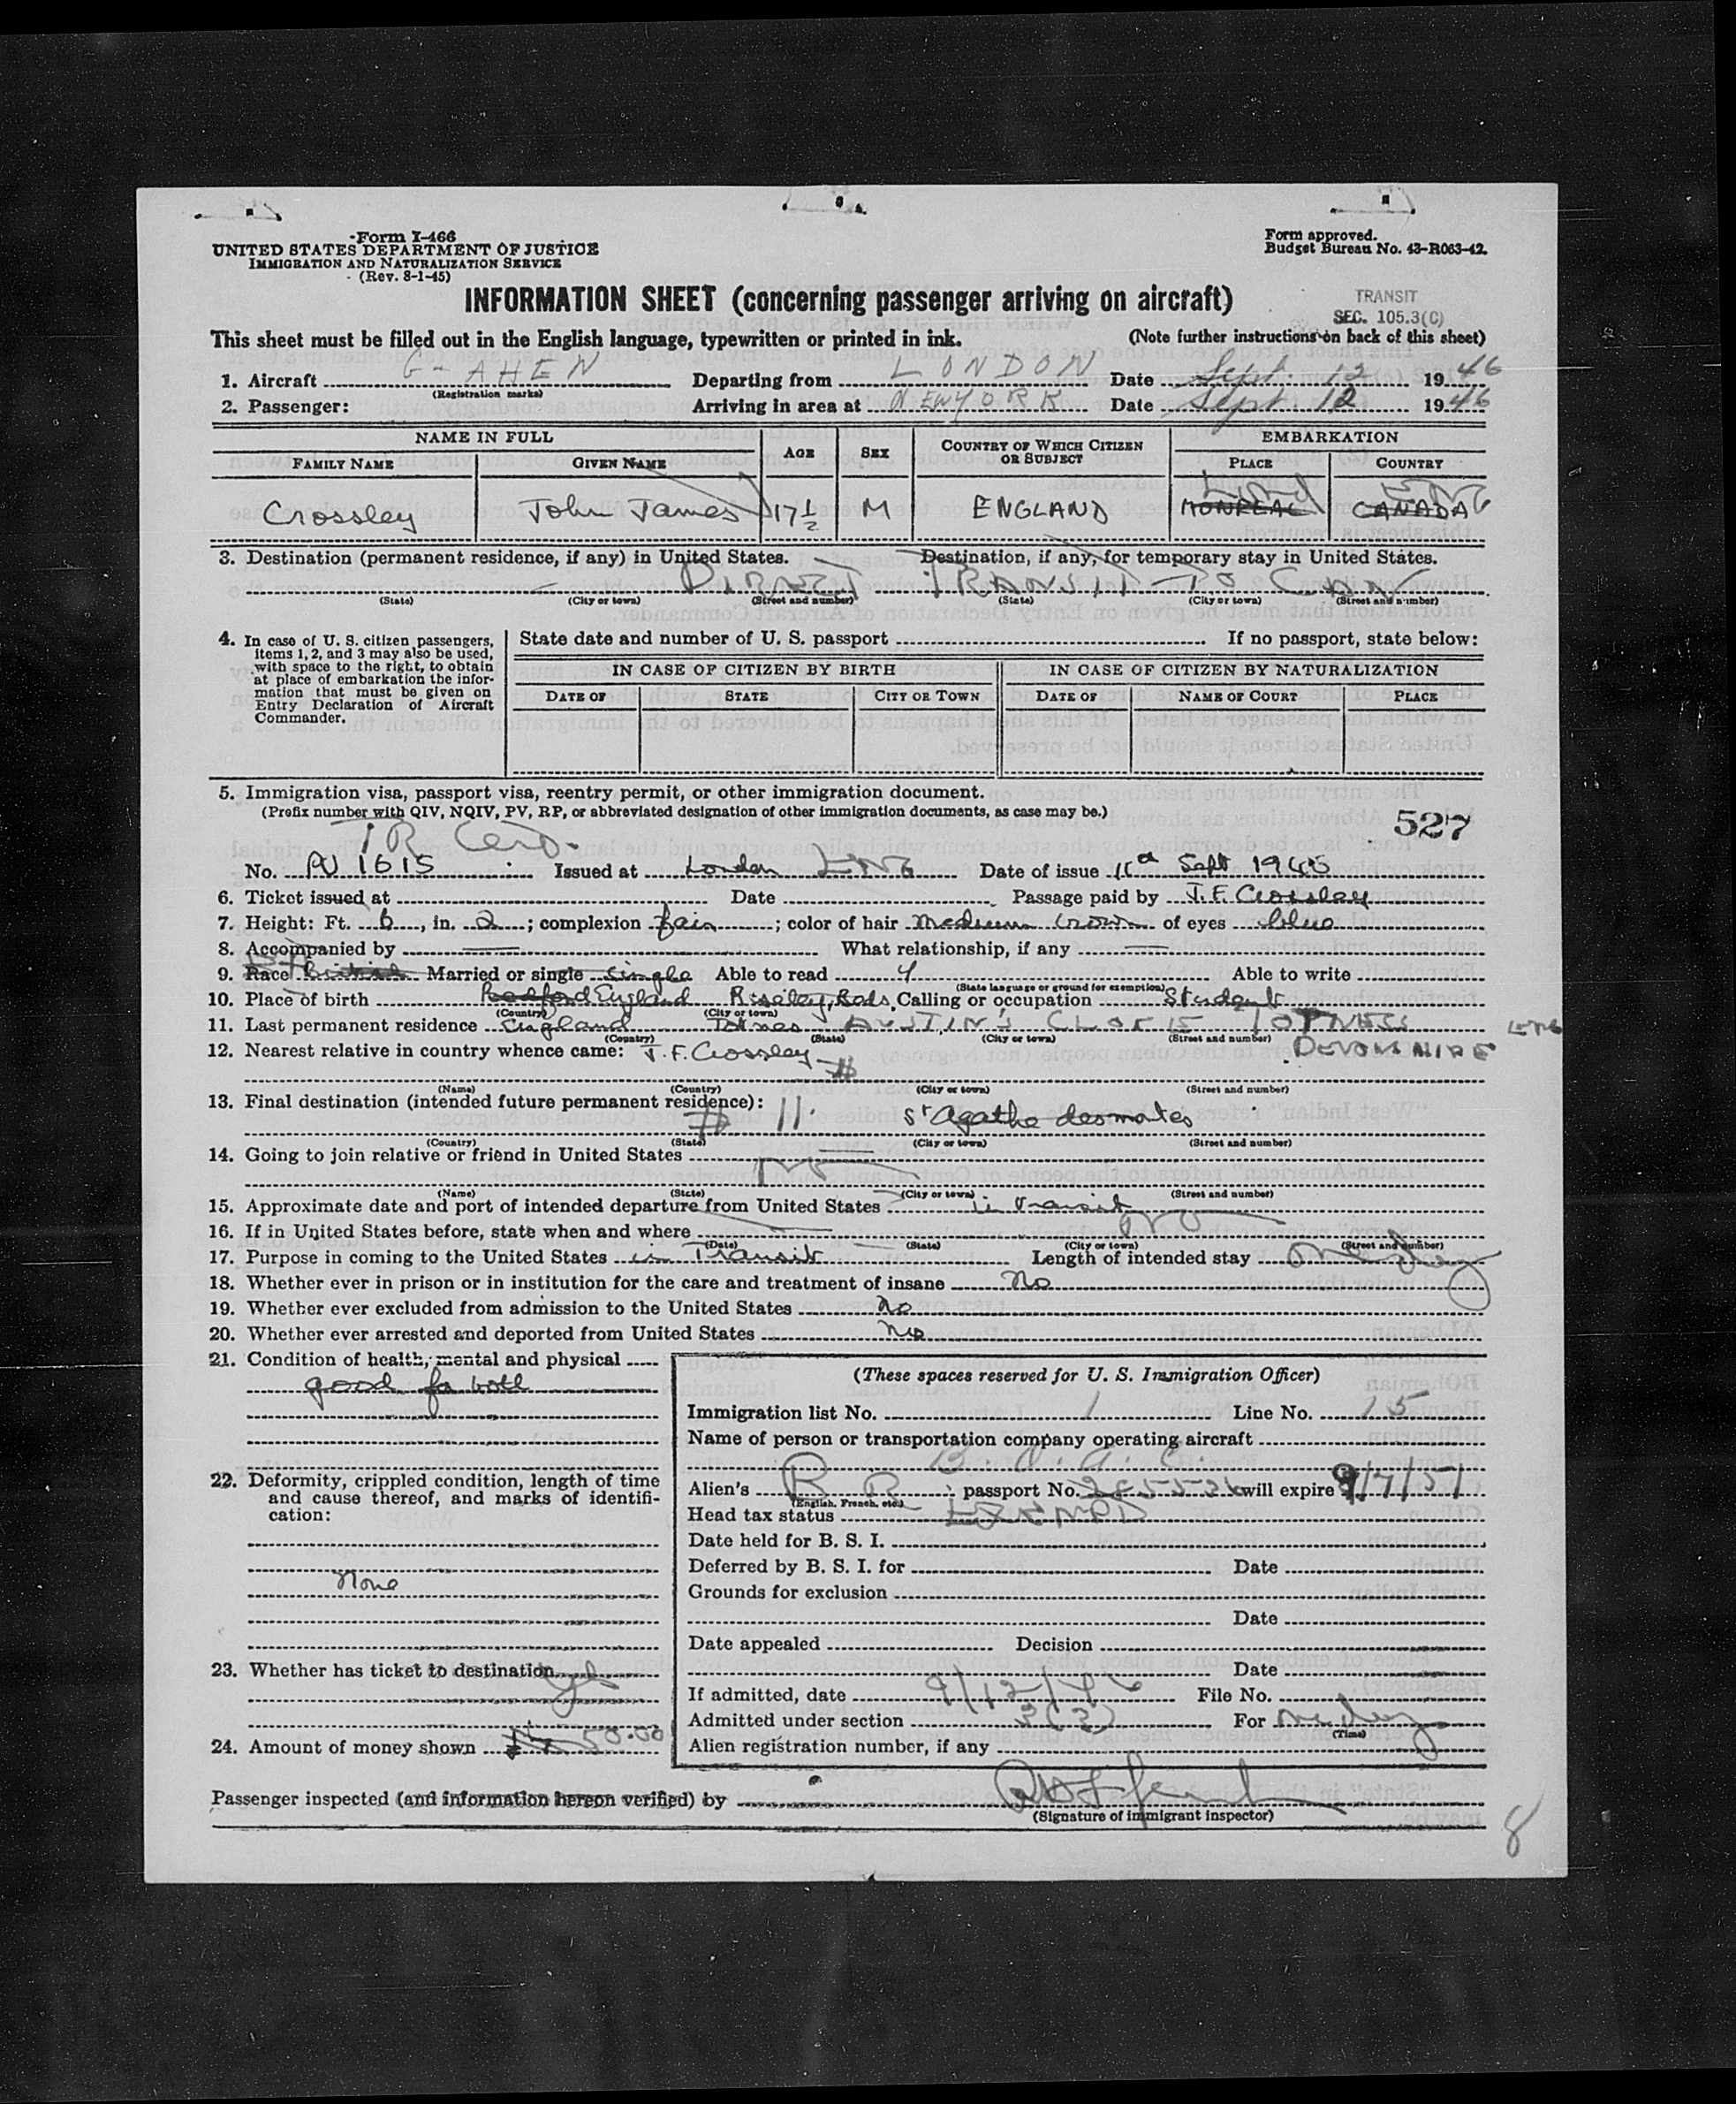 Form I-466
UNITED STATES DEPARTMENT OF JUSTICE
IMMIGRATION AND NATURALIZATION SERVICE
(Rev. 8-1-45)
Form approved.
Budget Bureau No. 43-R063-42.
INFORMATION SHEET (concerning passenger arriving on aircraft)
TRANSIT
SEC. 105.3(C)
This sheet must be filled out in the English language, typewritten or printed in ink. (Note further instructions on back of this sheet)
1. Aircraft G-AHEN Departing from LONDON Date Sept. 12 1946
(Registration marks)
2. Passenger: Arriving in area at NEWYORK Date Sept 12 1946
NAME IN FULL AGE SEX COUNTRY OF WHICH CITIZEN OR SUBJECT EMBARKATION
FAMILY NAME GIVEN NAME PLACE COUNTRY
Crossley John James 17 1/2 M ENGLAND MONREAL Lond CANADA ENG
3. Destination (permanent residence, if any) in United States. Destination, if any, for temporary stay in United States.
DIRECT TRANSIT TO CAN
(State) (City or town) (Street and number) (State) (City or town) (Street and number)
4. In case of U. S. citizen passengers, items 1, 2, and 3 may also be used, with space to the right, to obtain at place of embarkation the information that must be given on Entry Declaration of Aircraft Commander.
State date and number of U. S. passport If no passport, state below:
IN CASE OF CITIZEN BY BIRTH IN CASE OF CITIZEN BY NATURALIZATION
DATE OF STATE CITY OR TOWN DATE OF NAME OF COURT PLACE
5. Immigration visa, passport visa, reentry permit, or other immigration document.
(Prefix number with QIV, NQIV, PV, RP, or abbreviated designation of other immigration documents, as case may be.)
527
TR Cert.
No. 1615 Issued at London ENG Date of issue Sept 1946
6. Ticket issued at Date Passage paid by J.F. Crossley
7. Height: Ft. 6, in. 2; complexion fair; color of hair medium brown of eyes blue
8. Accompanied by What relationship, if any
9. Race British Married or single single Able to read Able to write
(State language or ground for exemption)
10. Place of birth Bedford England Riseley, Beds. Calling or occupation Student
(Country) (City or town)
11. Last permanent residence England Totnes AUSTIN'S CLOSE TOTNESS ENG
(Country) (State) (City or town) (Street and number) DEVONSHIRE
12. Nearest relative in country whence came: J.F. Crossley #
(Name) (Country) (City or town) (Street and number)
13. Final destination (intended future permanent residence):
# 11. St Agathe des monts
(Country) (State) (City or town) (Street and number)
14. Going to join relative or friend in United States
No
(Name) (State) (City or town) (Street and number)
15. Approximate date and port of intended departure from United States in transit
16. If in United States before, state when and where NO
(Date) (State) (City or town) (Street and number)
17. Purpose in coming to the United States in Transit Length of intended stay one day
18. Whether ever in prison or in institution for the care and treatment of insane No
19. Whether ever excluded from admission to the United States No
20. Whether ever arrested and deported from United States No
21. Condition of health, mental and physical
good for both
22. Deformity, crippled condition, length of time and cause thereof, and marks of identification:
None
23. Whether has ticket to destination yes
24. Amount of money shown 50.00
(These spaces reserved for U. S. Immigration Officer)
Immigration list No. 1 Line No. 15
Name of person or transportation company operating aircraft
B. O. A. C.
Alien's BR passport No. will expire 9/7/51
(English, French, etc.)
Head tax status EXEMPT
Date held for B. S. I.
Deferred by B. S. I. for Date
Grounds for exclusion
Date
Date appealed Decision
Date
If admitted, date 9/12/46 File No.
Admitted under section 3(3) For one day
(Time)
Alien registration number, if any
Passenger inspected (and information hereon verified) by
(Signature of immigrant inspector)
8